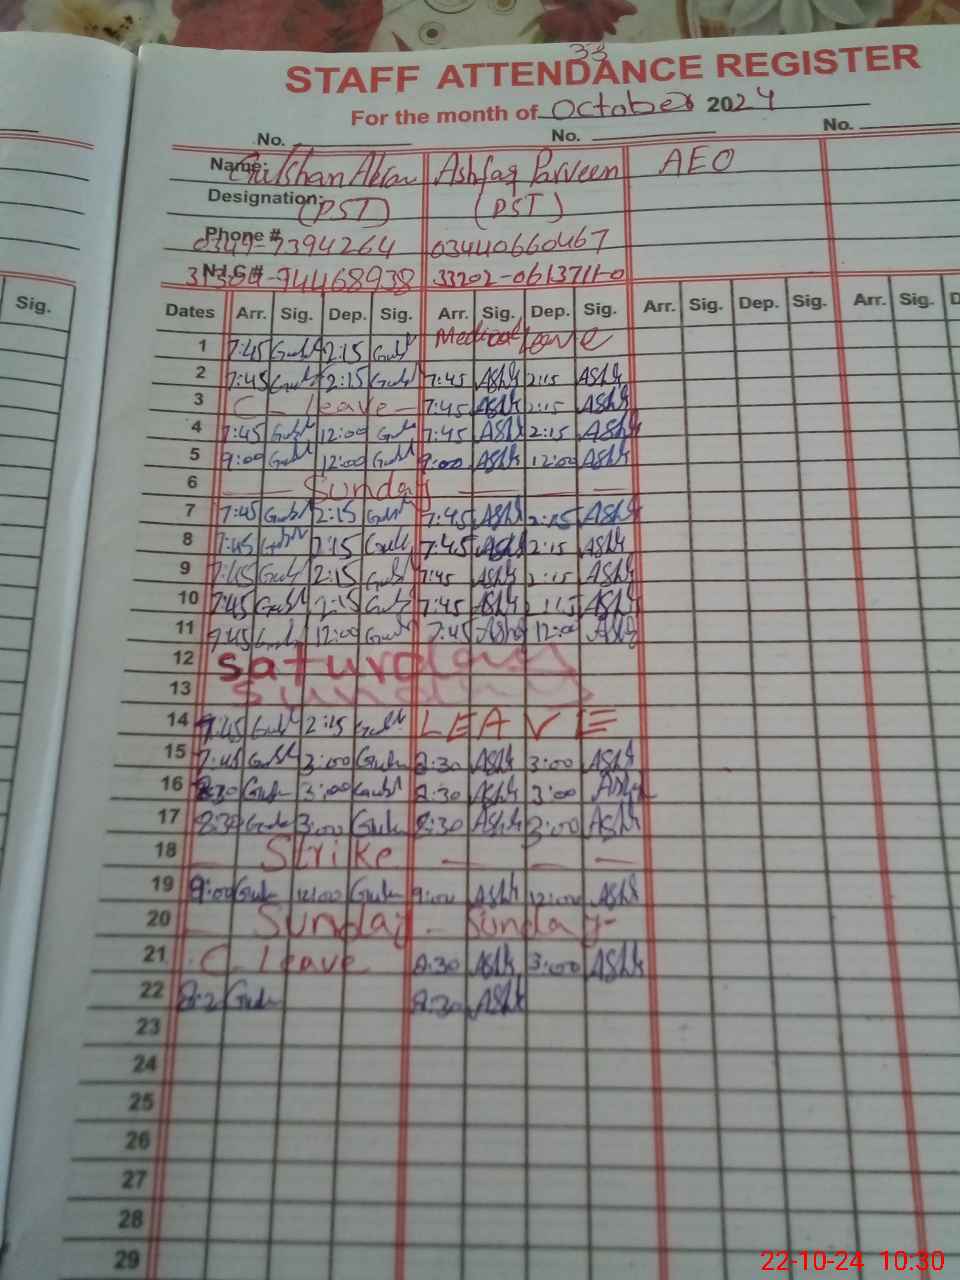 33
STAFF ATTENDANCE REGISTER
For the month of October 2024
No. No. No.
Name: Gulshan Ashfaq Parveen AEO
Designation: (PST) (PST)
Phone # 7394264 03440660467
N.I.C # 94468938 33202-0613711-0
Sig. Dates Arr. Sig. Dep. Sig. Arr. Sig. Dep. Sig. Arr. Sig. Dep. Sig. Arr. Sig. D
1 7:45 Gulsh 2:15 Gulsh Medical Leave
2 7:45 Gulsh 2:15 Gulsh 7:45 Ashfq 2:15 Ashfq
3 C - leave - 7:45 Ashfq 2:15 Ashfq
4 7:45 Gulsh 12:00 Gulsh 7:45 Ashfq 2:15 Ashfq
5 9:00 Gulsh 12:00 Gulsh 9:00 Ashfq 12:00 Ashfq
6 — Sunday — —
7 7:45 Gulsh 2:15 Gulsh 7:45 Ashfq 2:15 Ashfq
8 7:45 Gulsh 2:15 Gulsh 7:45 Ashfq 2:15 Ashfq
9 7:45 Gulsh 2:15 Gulsh 7:45 Ashfq 2:15 Ashfq
10 7:45 Gulsh 2:15 Gulsh 7:45 Ashfq 2:15 Ashfq
11 7:45 Gulsh 12:00 Gulsh 7:45 Ashfq 12:00 Ashfq
12 Saturday
13 Sunday
14 7:45 Gulsh 2:15 Gulsh LEAVE
15 7:45 Gulsh 3:00 Gulsh 8:30 Ashfq 3:00 Ashfq
16 8:30 Gulsh 3:00 Gulsh 8:30 Ashfq 3:00 Ashfq
17 8:30 Gulsh 3:00 Gulsh 8:30 Ashfq 3:00 Ashfq
18 — Strike — — —
19 9:00 Gulsh 12:00 Gulsh 9:00 Ashfq 12:00 Ashfq
20 — Sunday - Sunday -
21 C - leave 8:30 Ashfq 3:00 Ashfq
22 Gulsh 8:30 Ashfq
23
24
25
26
27
28
29
22-10-24 10:30